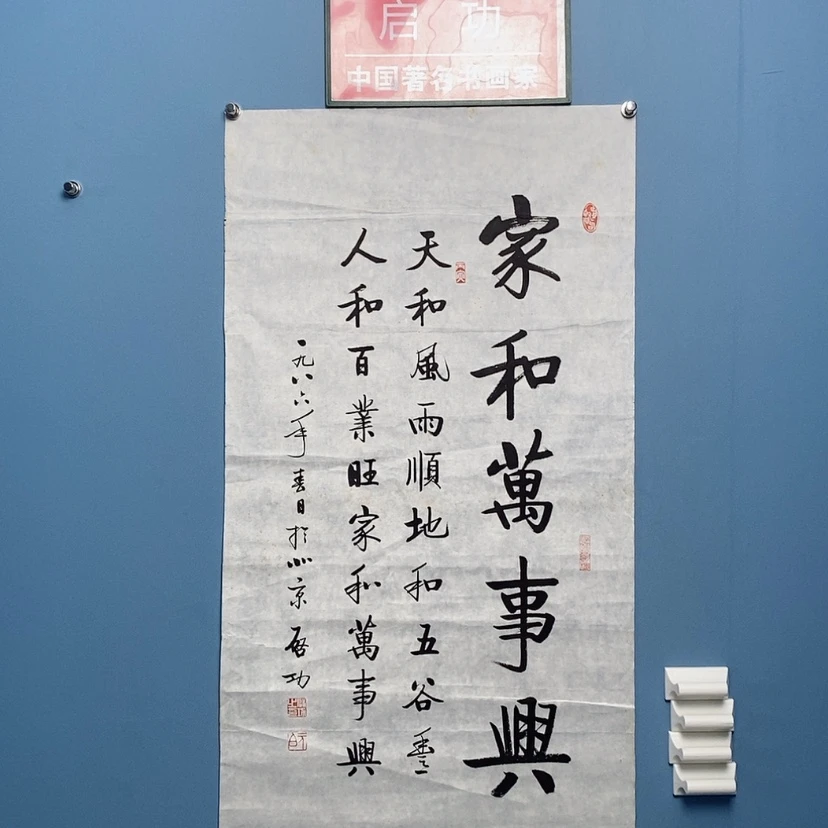 启功
中国著名书画家
家和萬事興
天和風雨順地和五谷豊
人和百業旺家和萬事興
一九八六年春日於北京啓功